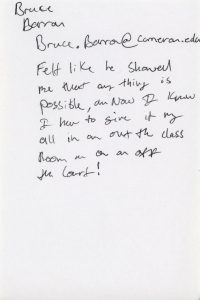 Bruce
Barran
Bruce.Barran@cameran.edu
Felt like he showed
me that any thing is
possible, an Now I Know
I hav to give it my
all in an out the class
Room an on an off
the Court!